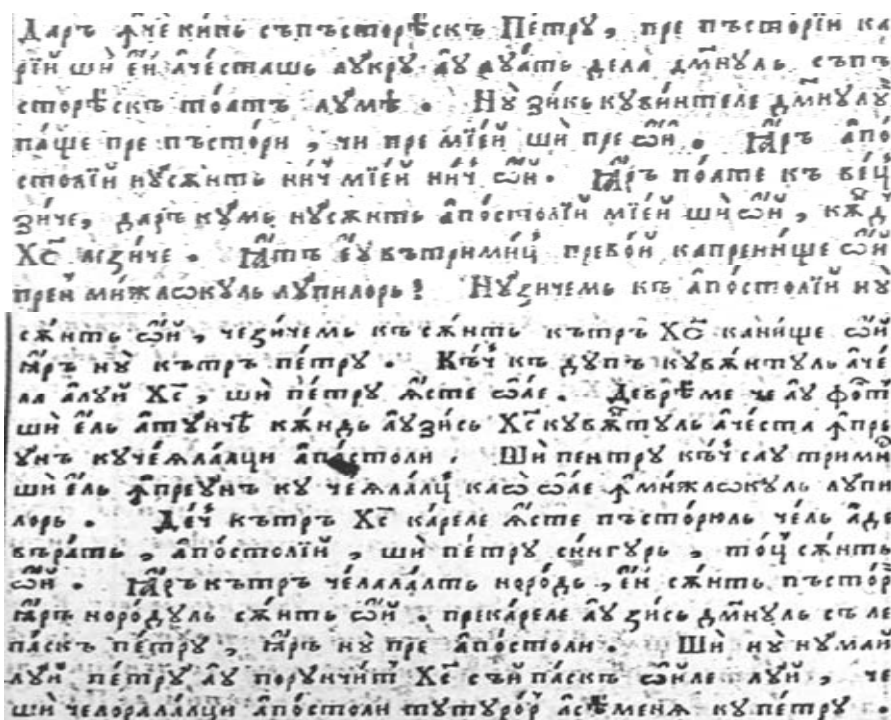 Даръ ꙟче кипь съпъсторѣскъ Пе́тру, пре пъсторїи ка
рїй шѝ є҆́й а҆че́сташь лукру̀ а҆у луа́ть дела̀ дм҃нуль съпъ
сторѣскъ тоа́тъ лу́мѣ. Ну̀ зикь куви́нтеле дм҃нулꙋ́
па́ще пре пъсто́ри, чи пре мїе́й шѝ пре ѻ҆́й. Ꙗ҆́ръ а҆по́
столїй нꙋсжнть ни́ч мїе́й ни́ч ѻ҆́й. Ꙗ҆́ръ по́ате къ ве́ц
зи́че, даръ кумь нусжнть а҆по́столїй мїе́й шѝ ѻ҆й, кжд
Хс҃ лезиче. Ꙗ҆тъ є҆у въ тримиц прево́й капренище ѻ҆́й
прен мижлѡкуль лупилорь! Ну̀зичемь къ а҆по́столїй ну̀
сжнть ѻ҆́й, чезичемь къ сжнть кътръ Хс҃ канище ѻ҆й
ꙗ҆ръ ну̀ кътръ пе́тру. Къч къ дупъ кувжнтꙋль а҆че́
ла а҆луй Хс҃, шѝ пе́тру ꙗ҆сте ѻ҆а́е. Деврѣме че а҆у фо́ст
шѝ є҆ль а҆тꙋнчѣ кжндь а҆узись Хс҃ кувжнтꙋль а҆че́ста ꙟпре
ꙋнъ кучеѧла́лци а҆по́столи. Шѝ пентру къч сау трими́с
шѝ є҆ль ꙟпреꙋнъ ку чеѧла́лц каѡ ѻ҆а́е ꙟмижлѡкуль лупи
лорь. Де́ч кътръ Хс҃ ка́реле ꙗ҆сте пъсто́рюль чель а҆де
въра́ть, а҆по́столїй, шѝ пе́тру сингурь, то́ц сжнть
ѻ҆й. Ꙗ҆ръ кътръ че́лала́лть норо́дь, є҆й сжнть пъсто́р
ꙗ҆ръ норо́дꙋль сжнть ѻ҆й. прека́реле а҆у зись дм҃нꙋль съ ле
па́скъ пе́тру, ꙗ҆ръ ну̀ пре а҆по́столи. Шѝ ну̀ нꙋмай
лꙋй пе́тру а҆у порꙋнчит Хс҃ съй па́скъ ѻ҆йле лꙋй, че
шѝ челорала́лци а҆по́столи тꙋтꙋро́р а҆сѣменѧ ку пе́тру.